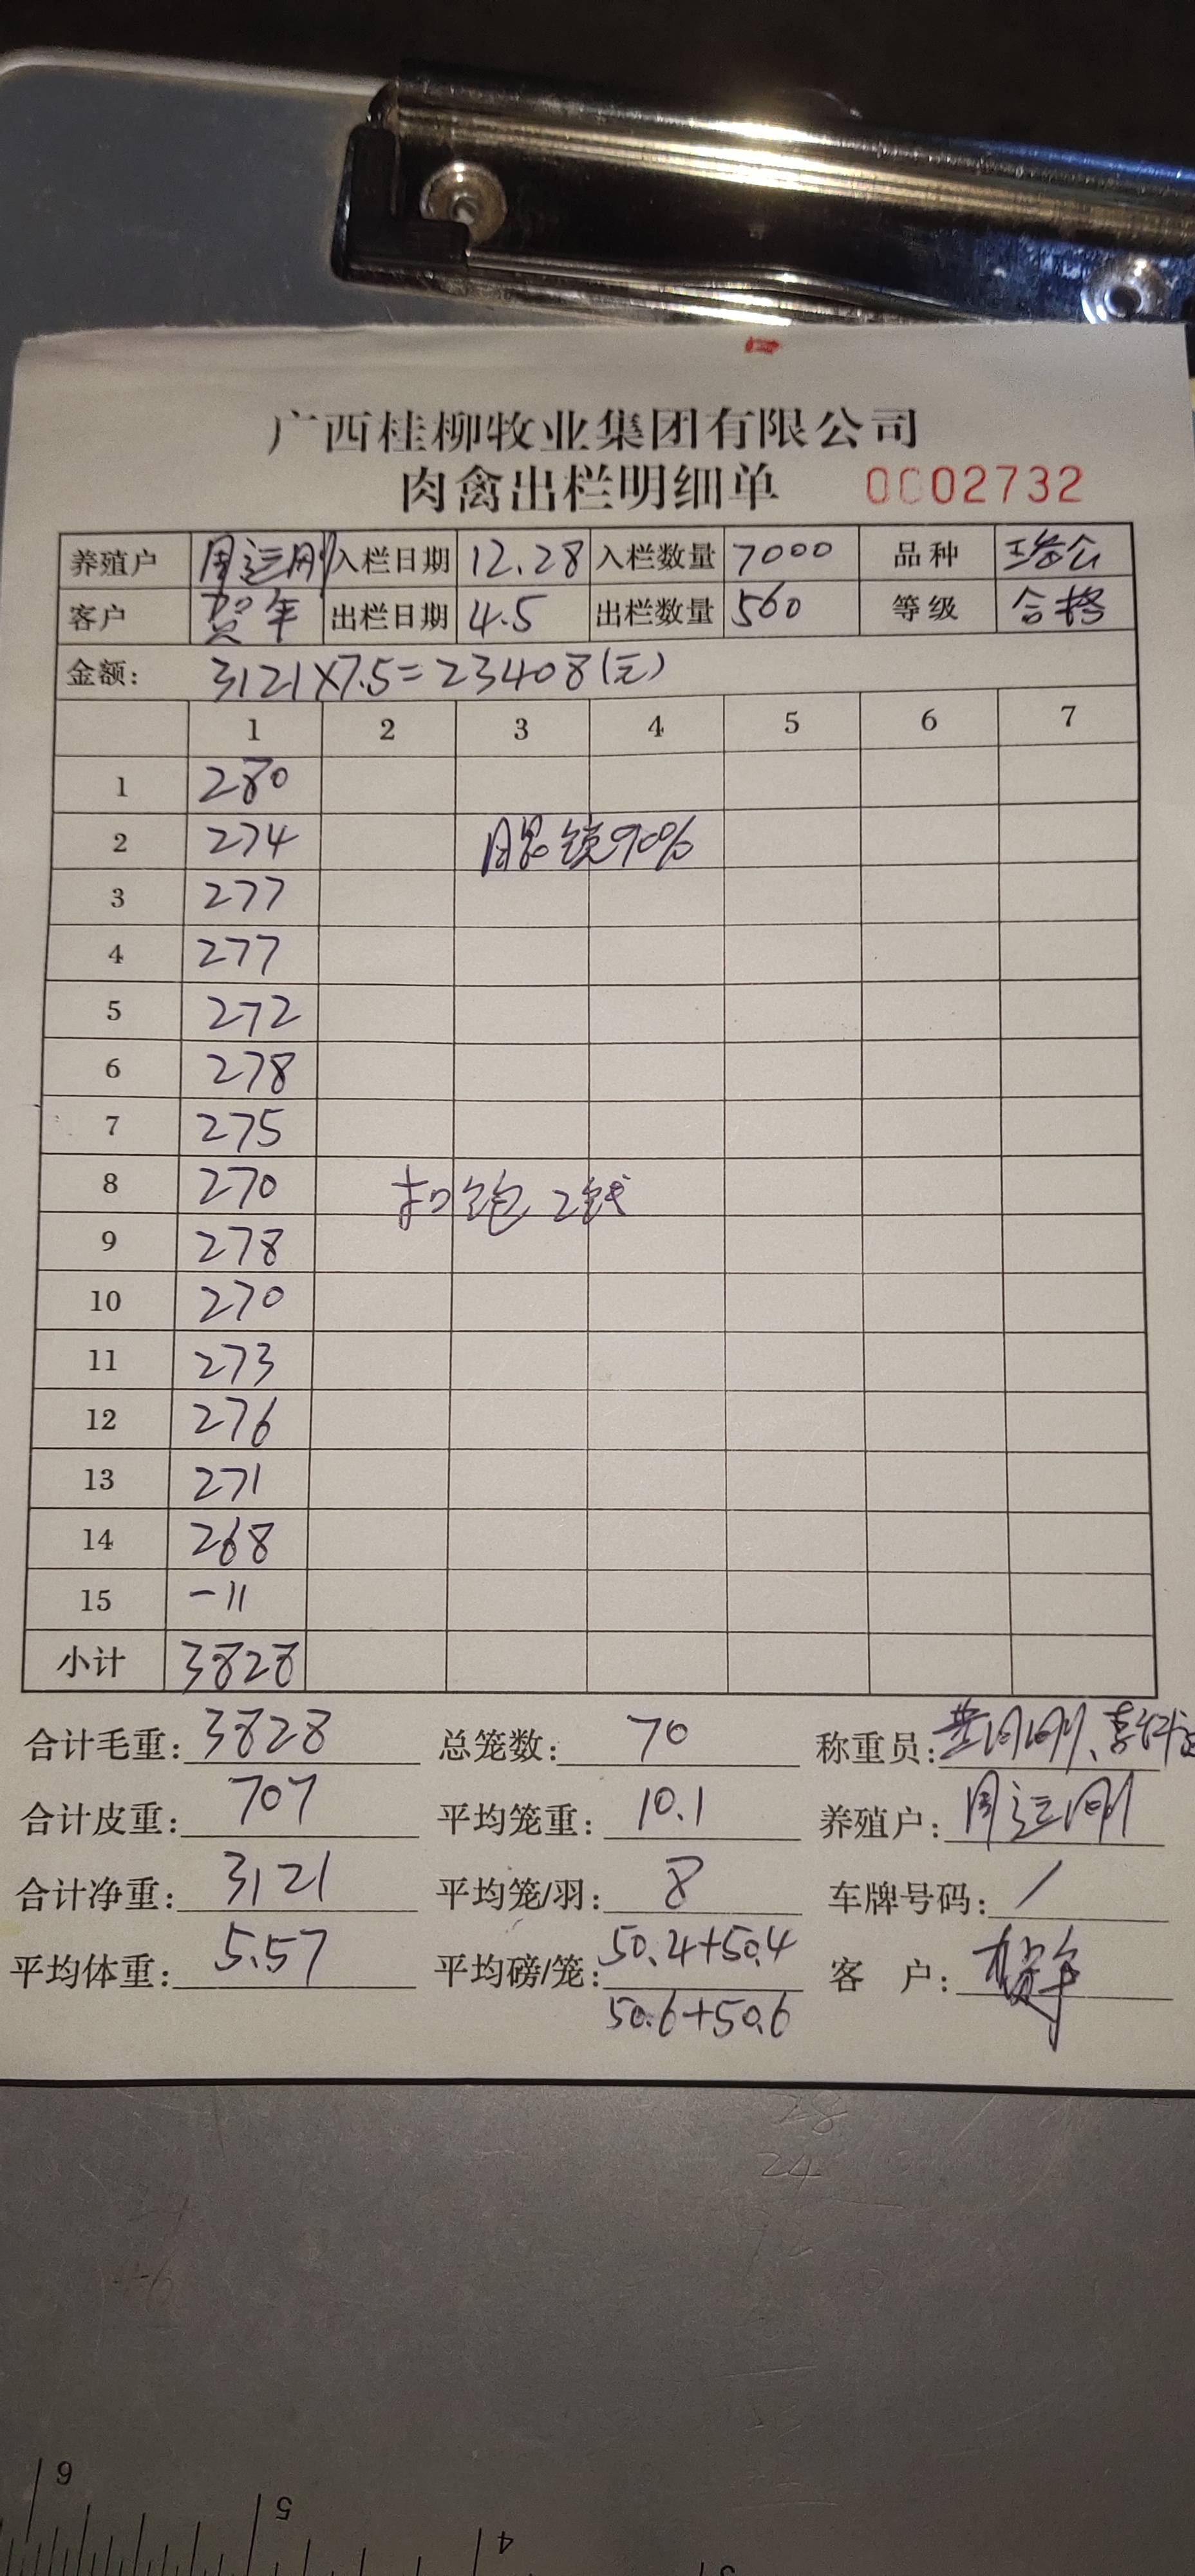 广西桂柳牧业集团有限公司
肉禽出栏明细单 0002732
养殖户 周运刚 入栏日期 12.28 入栏数量 7000 品种 瑶公
客户 贺年 出栏日期 4.5 出栏数量 560 等级 合格
金额: 3121×7.5=23408(元)
1 2 3 4 5 6 7
1 280
2 274 眼镜90%
3 277
4 277
5 272
6 278
7 275
8 270 扣饱2钱
9 278
10 270
11 273
12 276
13 271
14 268
15 -11
小计 3828
合计毛重: 3828 总笼数: 70 称重员:
合计皮重: 707 平均笼重: 10.1 养殖户: 周运刚
合计净重: 3121 平均笼/羽: 8 车牌号码: /
平均体重: 5.57 平均磅/笼: 50.4+50.4 客 户: 贺年
50.6+50.6
28
24
6
5
4